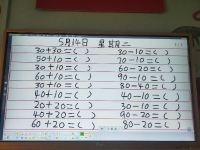 5月14日 星期二
30+30=( ) 30-10=( )
50+10=( ) 70-10=( )
30+10=( ) 60-20=( )
60+10=( ) 90-10=( )
30+10=( ) 80-40=( )
40+10=( ) 40-10=( )
20+20=( ) 30-10=( )
40+20=( ) 90-20=( )
60+20=( ) 80-20=( )